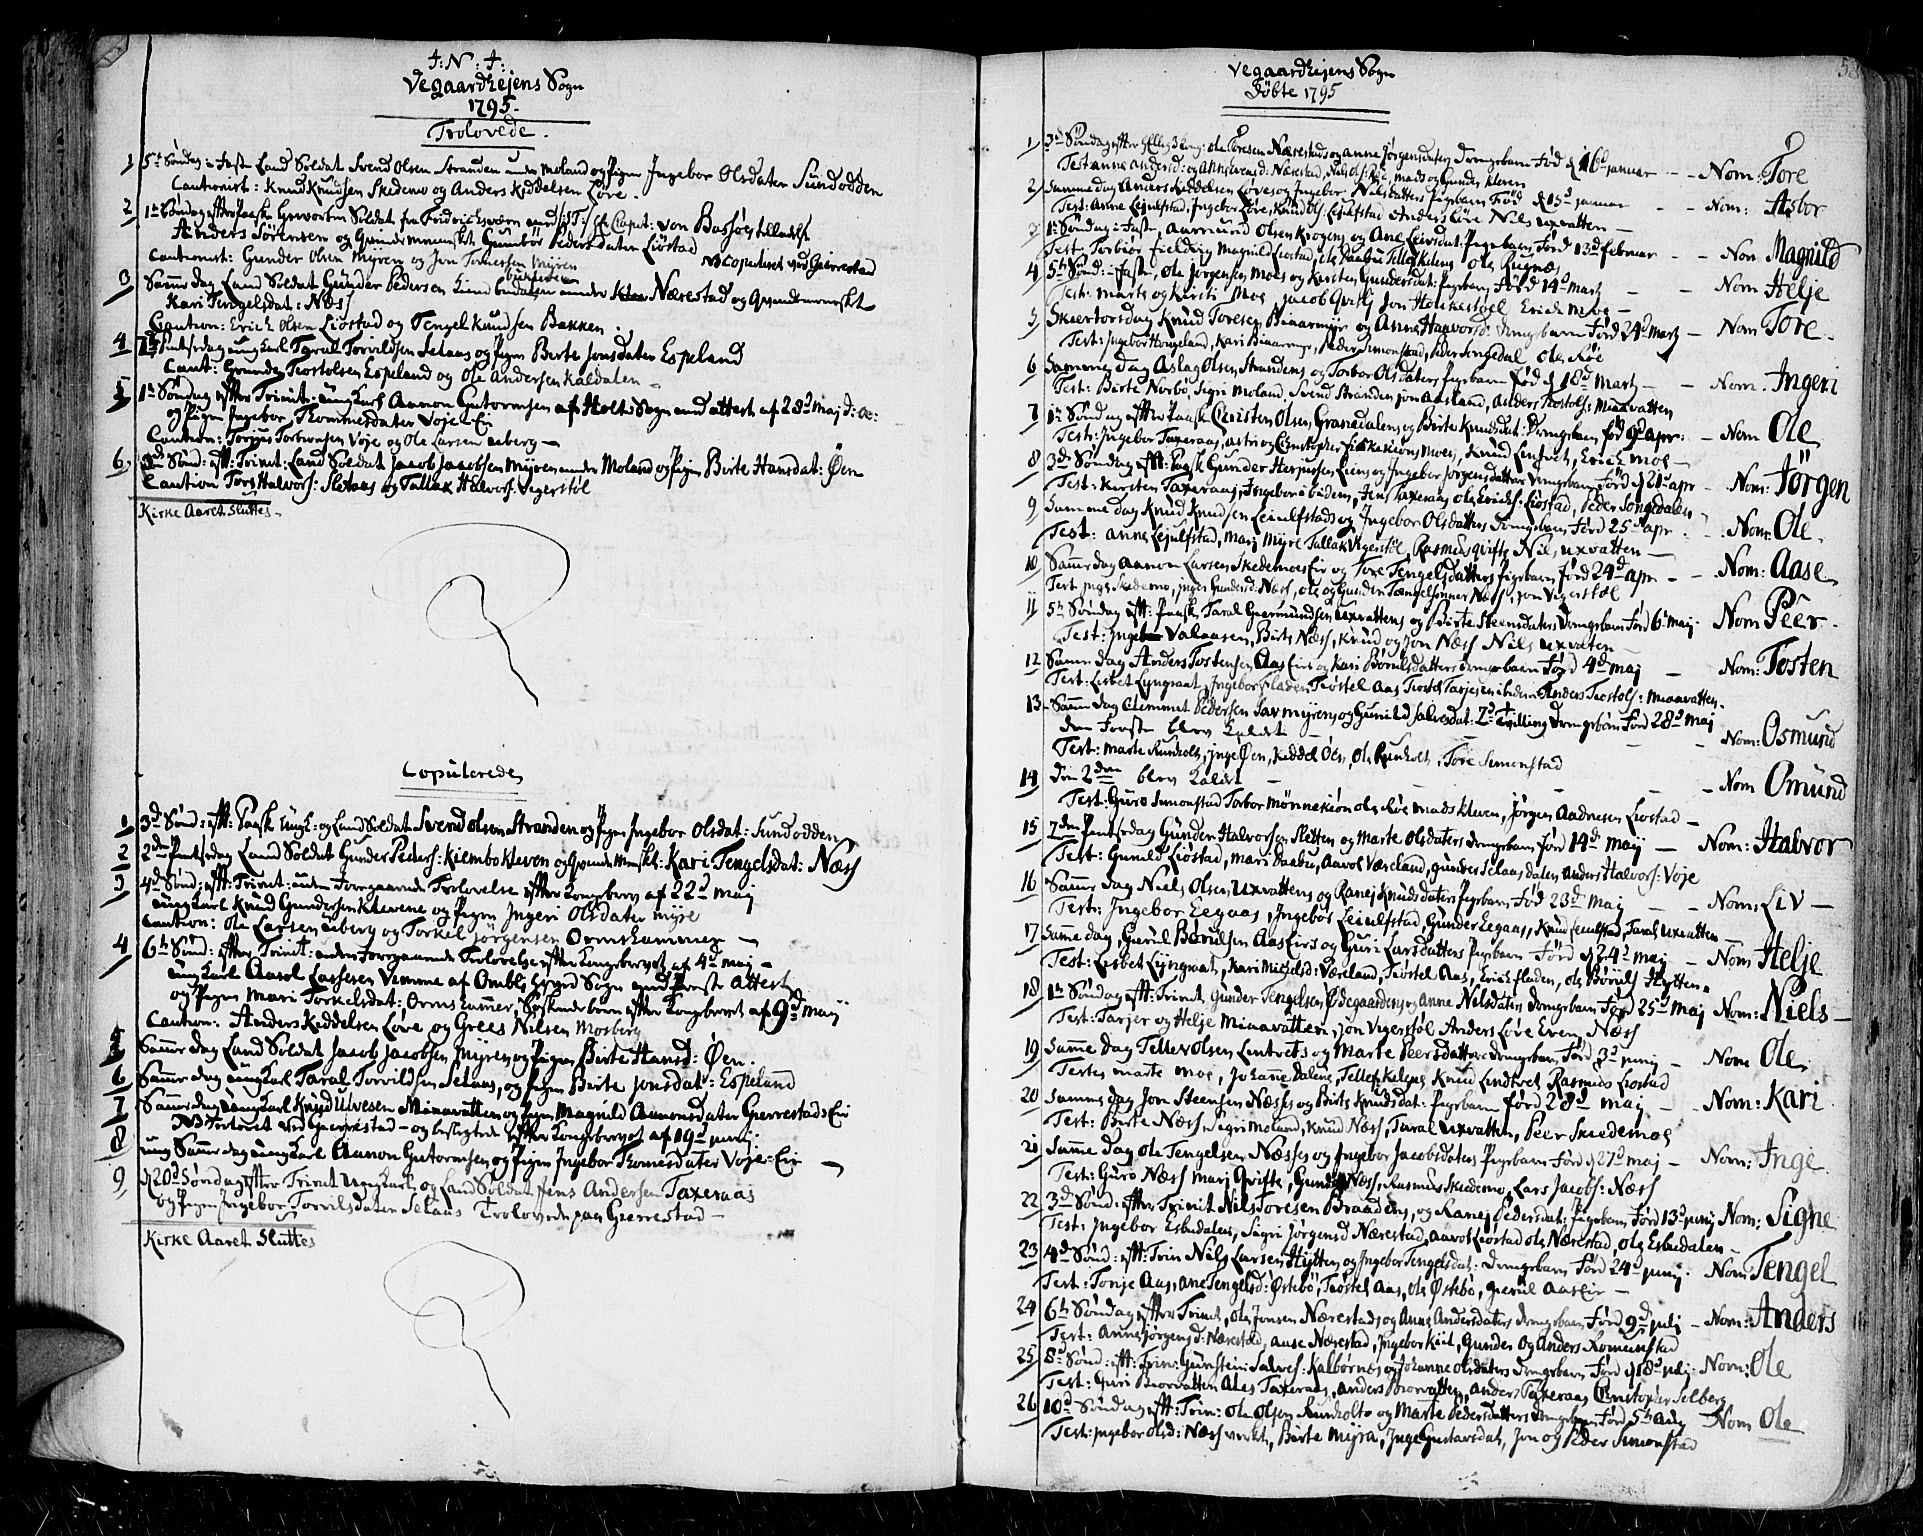 J: N: J:
Vegaardhejens Sogn
1795.
Trolovede.
1 5te Søndag i Faste Land Soldat Svend Olsen Stranden under Moland og Pigen Ingebor Olsdater Sundodden
Cautionist: Knud Knudsen Skedemo og Anders Kiddelsen Løve.
2 1te Søndag efter Paaske Gevorben Soldat fra Fridrichsværn med Capit: von Bassøes tilladelse
Anders Sørensen og Qvindemennisket Gunbor Peders Dater Liøstad
Cautionist: Gunder Olsen Myren og Jon Tommessen Myren NB Copuleret ved Gierrestad
3 Samme dag Land Soldat Gunder Pedersen under Nærestad og Qvindemennisket
Kari Tengelsdat: Næss
Caution: Erich Olsen Liøstad og Tengel Knudsen Bakken.
4 Pintsedag ungkarl Taral Torvildsen Selaas og Pigen Birte Jonsdater Espeland
Caut: Gunder Tiostolsen Espeland og Ole Andersen Kaldalen
5 1te Søndag efter Trinit: ungkarl Aanon Gutormsen af Holt Sogn med attest af 28de Maj
og Pigen Ingebor Thommesdater Voje Eie
Caution: Torjus Torbersen Voje og Ole Larsen Aaberg
6. 3de Sønd: eft: Trinit: Land Soldat Jacob Jacobsen Myren under Moland og Pigen Birte Hansdat: Øen
Caution Tors Halvors: Selaas og Tallak Halvors: Vigerstøl
Kirke Aaret Sluttes
Copulerede
1 3de Sønd: eft: Paask Ungk: og Land Soldat Svend Olsen Stranden og Pigen Ingebor Olsdat: Sundodden
2 2den Pintsedag Land Soldat Gunder Peders: Kiembo Kleven og Qvinde Mensk: Kari Tengelsdat: Næss
3 4de Sønd: eft: Trinit: uden Foregaaende Trolovelse efter Kongebrev af 22de Maj
ungkarl Knud Gundersen Klevene og Pigen Ingeri Olsdater Myre
Caution: Ole Larsen Aaberg og Torkel Jørgensen Ormshammer
4 6te Sønd: efter Trinit: uden Foregaaende Trolovelse efter Kongebrevet af 4de Maj
ungkarl Aarol Lassesen Vimme af Omblj Sogn med Præst Attest
og Pigen Mari Torkelsdat: Ormshammer, Søskendebørn efter Kongebrevet af 9de Maij
Caution: Anders Kiddelsen Løve og Grees Nilsen Mosberg
5 Samme dag Land Soldat Jacob Jacobsen Myren og Pigen Birte Hansd: Øen.
6 Samme dag ungkarl Taral Torvildsen Selaas, og Pigen Birte Jonsdat: Espeland
7 Samme dag Ungkarl Knud Ulvesen Miaavatten og Pigen Magnild Aanonsdater Gierrestads Eie
NB Trolovet ved Gierrestad og beslegtede efter Kongebrevet af 19de Junij.
8 Samme dag ungkarl Aanon Gutormsen og Pigen Ingebor Thomesdater Voje Eie
9 20de Søndag efter Trinit ungkarl og Land Soldat Jens Andersen Taxeraas
og Pigen Ingebor Torvilsdater Selaas Trolovede paa Gierrestad
Kirke Aaret Sluttes
Vegaardhejens Sogn
Døbte 1795
1 3de Søndag efter Hellig 3 Kong: Ole Toresen Nærestads og Anne Jørgensdaters Drengebarn Fød d 16de Januar Nom: Tore
2 Samme dag Anders Kiddelsen Løves og Ingebor Nilsdatters Pigebarn Fød d 15de Januar Nom: Asbor
Test: Anne Lejulfstad, Ingebor Løve, Knud Ols: Lejulfstad Anders Løve Nils Uxvatten
3 1te Søndag i Faste, Aamund Olsen Krogens og Ane Leivsdat: Pigebarn Fød 13de Februar Nom Magnild
4 5te Sønd: i Faste, Ole Jørgensen Moes og Kirsten Gundersdat: Pigebarn Fød 14de Marts Nom Helje
Test: Marte og Kirsti Moe, Jacob Qvifte Jon Houkestøel Erich Moe
5 Skiertorsdag Knud Toresen Biaarmyr og Anne Halvorsd: Drengebarn Fød 24de Marts Nom Tore
Test: Ingebor Hougeland, Kari Biaarmyr, Peder Simonstad, Peder Songedal Ole Røe
6 Samme dag Aslag Olsen Strandens og Torbor Olsdaters Pigebarn Fød d 18de Marts Nom: Ingeri
Test: Birte Norbø, Segri Moland, Svend Stranden Jon Aasland, Anders Tiostols: Miaavatten
7 1te Søndag efter Paask Christen Olsen Granedalens og Birte Knudsdat: Drengebarn Fød 9de Apr: Nom Ole
Test: Ingebor Taxeraas, Astri og Christopher Moen, Knud Lintvet, Erich Moe
8 3de Søndag eft: Paask Gunder Liens og Ingebor Jørgensdatters Drengebarn Fød d 21de Apr Nom: Jörgen
Test: Kirsten Taxeraas, Ingebor ibidem, Jens Taxeraas Ole Erichs: Liøstad, Peder Songedalen
9 Samme dag Knud Knudsen Leiulfstads og Ingebor Olsdatters Drengebarn Fød 25de Apr Nom: Ole.
Test: Anne Lejulfstad, Marj Myre Tallak Vigerstøl, Rasmus Qvifte Nils Uxvatten
10 Samme dag Aanon Larsen Skedemoes Eie og Tore Tengelsdatters Pigebarn Fød 24de Apr Nom: Aase
Test: Inge Skedemo, Inger Gundersd: Næss, Ole og Gunder Tengelsønner Næss, Jon Vigerstøl
11 5te Søndag eft: Paask Taral Giermundsen Uxvattens og Birte Steensdaters Drengebarn Fød 6te Maj Nom Peer
Test: Valaasen, Birte Næss, Knud og Jon Næss Nils Uxvatten
12 Samme dag Anders Tostensen Aas Eie og Kari Børulsdatters Drengebarn Fød 4de Maj Nom: Tosten
Test: Lisbet Lyngvat, Ingebor Fladen Tiøstel Aas Tiostel Tarjesen ibidem Anders Tiostols: Miaavatten.
13 Samme dag Clemmet Pedersen Savmyrens og Gunild Salvesdat: 2de Tvilling Drengebørn Fød 28de Maj
den Første blev kaldet Nom: Osmund
Test: Marte Runholt, Inge Øen, Kiddel Øen, Ole Runholt, Tore Simonstad
14 Den 2den blev kaldet Nom Omund
Test: Guro Simonstad Torbor Mønnekiøn Ole Røe Mads Kleven, Jörgen Aadnesen Liøstad
15 2den Pintsedag Gunder Halvorsen Sletten og Marte Olsdaters Drengebarn Fød 14de Maij Nom: Halvor
Test: Gunild Liøstad, Mari Daabu, Aarol Væreland, Gunder Selaas dalen, Anders Halvors: Voje
16 Samme dag Niels Olsen, Uxvattens og Ranej Knudsdaters Pigebarn Fød 23de Maij Nom: Liv
Test: Ingebor Eegaas, Ingebor Leiulfstad, Gunder Eegaas, Knud Leiulfstad, Taral Uxvatten
17 Samme dag, Gierul Børulsen Aas Eies og Guri Larsdatters Pigebarn Fød d 24de Maj Nom Helje
Test: Lisbet Lyngvat, Kari Michelsd: Væreland, Tiøstel Aas, Erich Fladen, Ole Børuls: Hytten
18 1te Søndag eft: Trinit, Gunder Tengelsen, Ødegaardens og Anne Nilsdaters Drengebarn Fød 25de Maj Nom: Niels
Test: Tarjer og Helje Miaavatten, Jon Vigerstøl Anders Løve Even Næss
19 Samme dag Tellev Olsen Lintvets og Marte Peersdatters Drengebarn Fød 3de Junij Nom Ole.
Testes Marte Moe, Johanne Dalene, Tellef Kelene Knud Lindtvet Rasmus Liøstad
20 Samme dag Jon Steensen Næsses og Birte Knudsdat: Pigebarn Fød 28de Maj. Nom: Kari
Test: Birte Næss Segri Moland, Knud Næss, Taral Uxvatten, Peer Skiedemoe
21 Samme dag Ole Tengelsen Næsses og Ingebor Jacobsdaters Pigebarn Fød d 27de Maj Nom: Inge.
Test: Guro Næss Marj Qvifte, Gunder Næss, Rasmus Skiedemo, Lars Jacobs: Næss
22 3de Sønd: efter Trinit Nils Toresen Braadens, og Ranej Pedersdat: Pigebarn Fød 13de Junij Nom: Signe
Test: Ingebor Esbedalen, Segri Jørgensd Nærestad, Aarol Liøstad Ole Nærestad, Ole Esbedalen
23 4de Sønd: eft: Trin Nils Larsen Hytten og Ingebor Tengelsdat: Drengebarn Fød 24de Junij Nom Tengel
Test: Tonje Aas, Ane Tengelsd: Østebø, Tiøstel Aas, Ole Østebø, Gierul Aas Eie
24 6te Søndag efter Trinit, Ole Jensen Nærestads og Anne Andersdaters Drengebarn Fød 9de Julij Nom: Anders
Test: Anne Jørgensd: Nærestad, Aase Nærestad, Ingebor Kiil, Gunder og Anders Romundstad
25 8de Sønd: eft: Trin: Gunstein Salves: Kalbørnes og Johanne Olsdaters Drengebarn Fød d 18de Julij Nom: Ole
Test: Guri Biorvatten Ales Taxeraas, Anders Biorvatten, Anders Taxeraas Christopher Selberg
26 10de Søndag eft: Trin: Ole Olsen Runholt og Marte Pedersdatters Drengebarn Fød 5te Aug Nom Ole
Test: Ingebor Olsd: Næss verket, Birte Myra, Inge Gustavsdat, Jon og Peder Simonstad